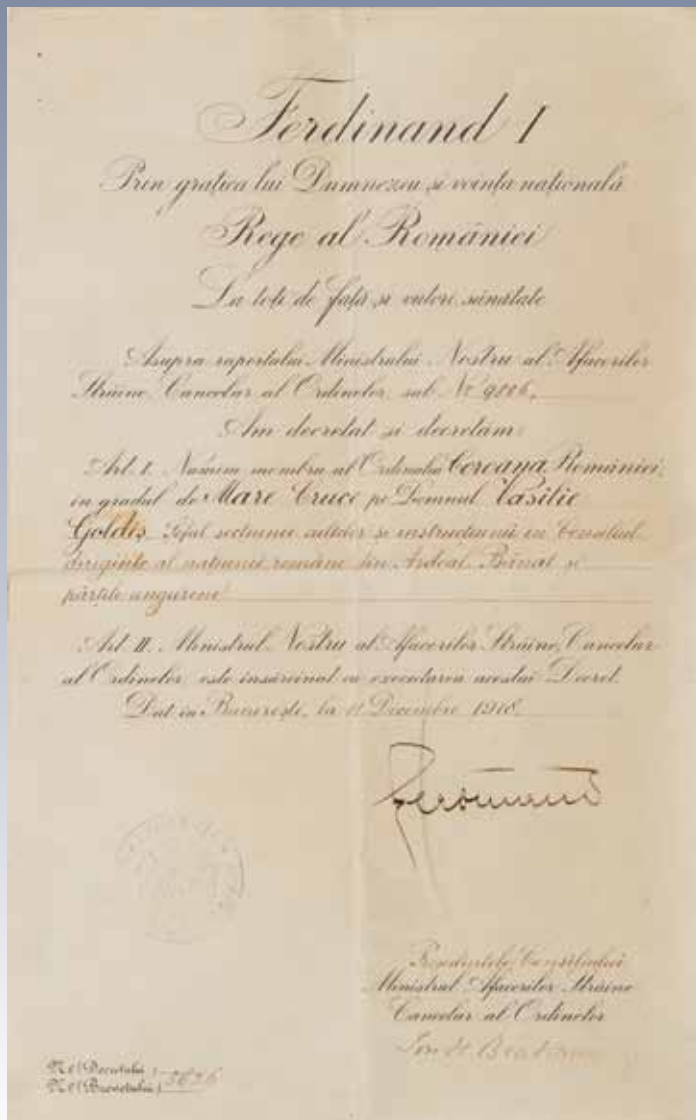 Ferdinand I
Prin grația lui Dumnezeu și voința națională
Rege al României
La toți de față și viitori, sănătate
Asupra raportului Ministrului Nostru al Afacerilor
Străine, Cancelar al Ordinelor, sub No
Am decretat și decretăm:
Art. I. Numim membru al Ordinului Coroana României,
în gradul de Mare Cruce pe Domnul Vasilie
Goldiș Șeful secțiunei cultelor și instrucțiunii în Consiliul
diriginte al națiunei române din Ardeal, Bănat și
părțile ungurene
Art. II. Ministrul Nostru al Afacerilor Străine, Cancelar
al Ordinelor, este însărcinat cu executarea acestui Decret.
Dat în București, la 11 Decembrie 1918.
Ferdinand
Președintele Consiliului
Ministrul Afacerilor Străine
Cancelar al Ordinelor
No (Decretului)
No (Brevetului)